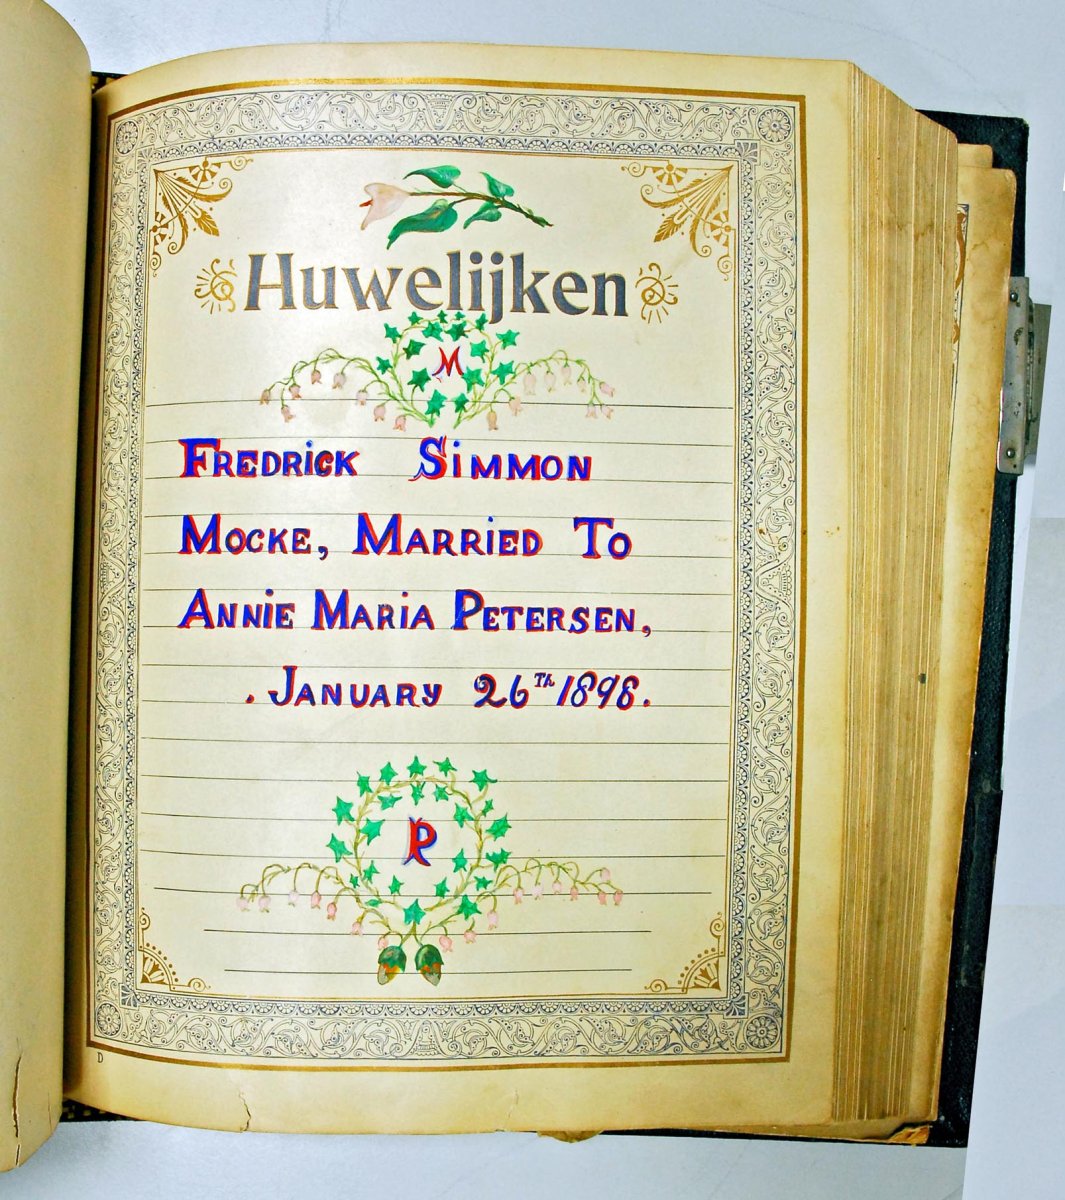 Huwelijken
M
FREDRiCK SiMMON
MOCKE, MARRiED TO
ANNiE MARiA PETERSEN,
. JANUARY 26Th 1898.
P
D